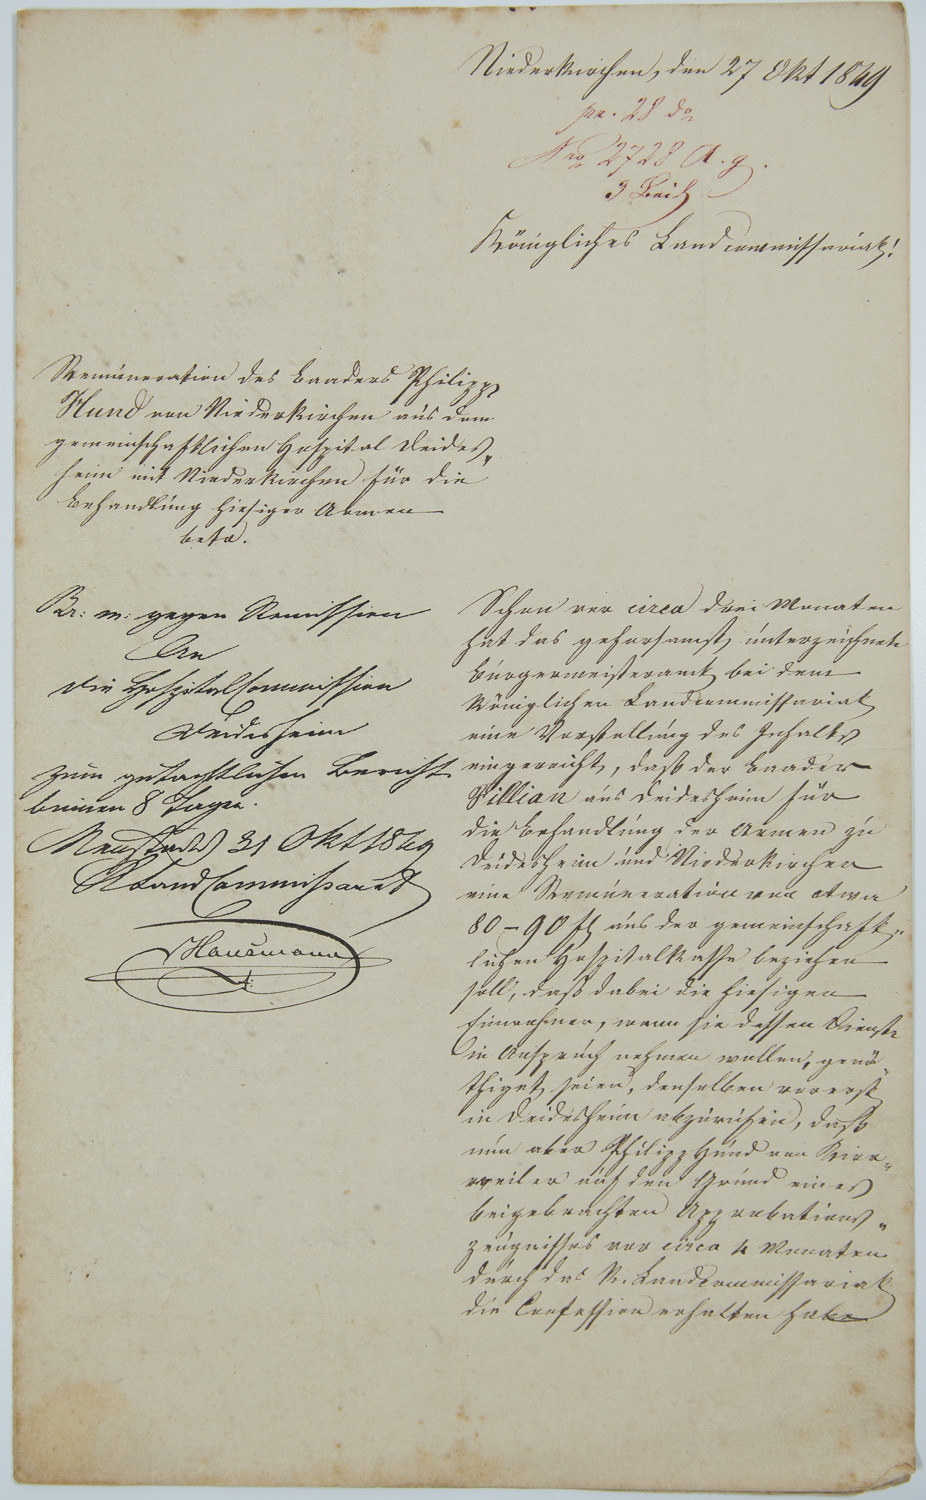 Niederkirchen, den 27 Okt 1849
pr. 28 do
Nro 2728 A. g.
3 Beil
Königliches Landcommissariat!
Remuneration des Baaders Philipp
Hund von Niederkirchen aus dem
gemeinschaftlichen Hospital Deides„
heim mit Niederkirchen für die
Behandlung hiesiger Armen
betr.
Br: m: gegen Remission
An
die Hospitalcommission
Deidesheim
zum gutachtlichen Bericht
binnen 8 Tagen.
Neustadt 31 Okt 1849
K Landcommissariat
Hausmann
Schon vor circa drei Monaten
hat das gehorsamst unterzeichnete
Bürgermeisteramt bei dem
Königlichen Landcommissariat
eine Vorstellung des Inhalts
eingereicht, daß der Baader
Villian aus Deidesheim für
die Behandlung der Armen zu
Deidesheim und Niederkirchen
eine Remuneration von etwa
80 – 90 fl aus der gemeinschaft„
lichen Hospitalkasse beziehen
soll, daß dabei die hiesigen
Einwohner, wenn sie dessen Dienste
in Anspruch nehmen wollen, genö„
thiget seien, denselben vorerst
in Deidesheim abzurufen, daß
nun aber Philipp Hund von Kirr„
weiler auf den Grund eines
beigebrachten Approbations„
zeugnisses vor circa 4 Monaten
durch das K. Landcommissariat
die Confession erhalten habe